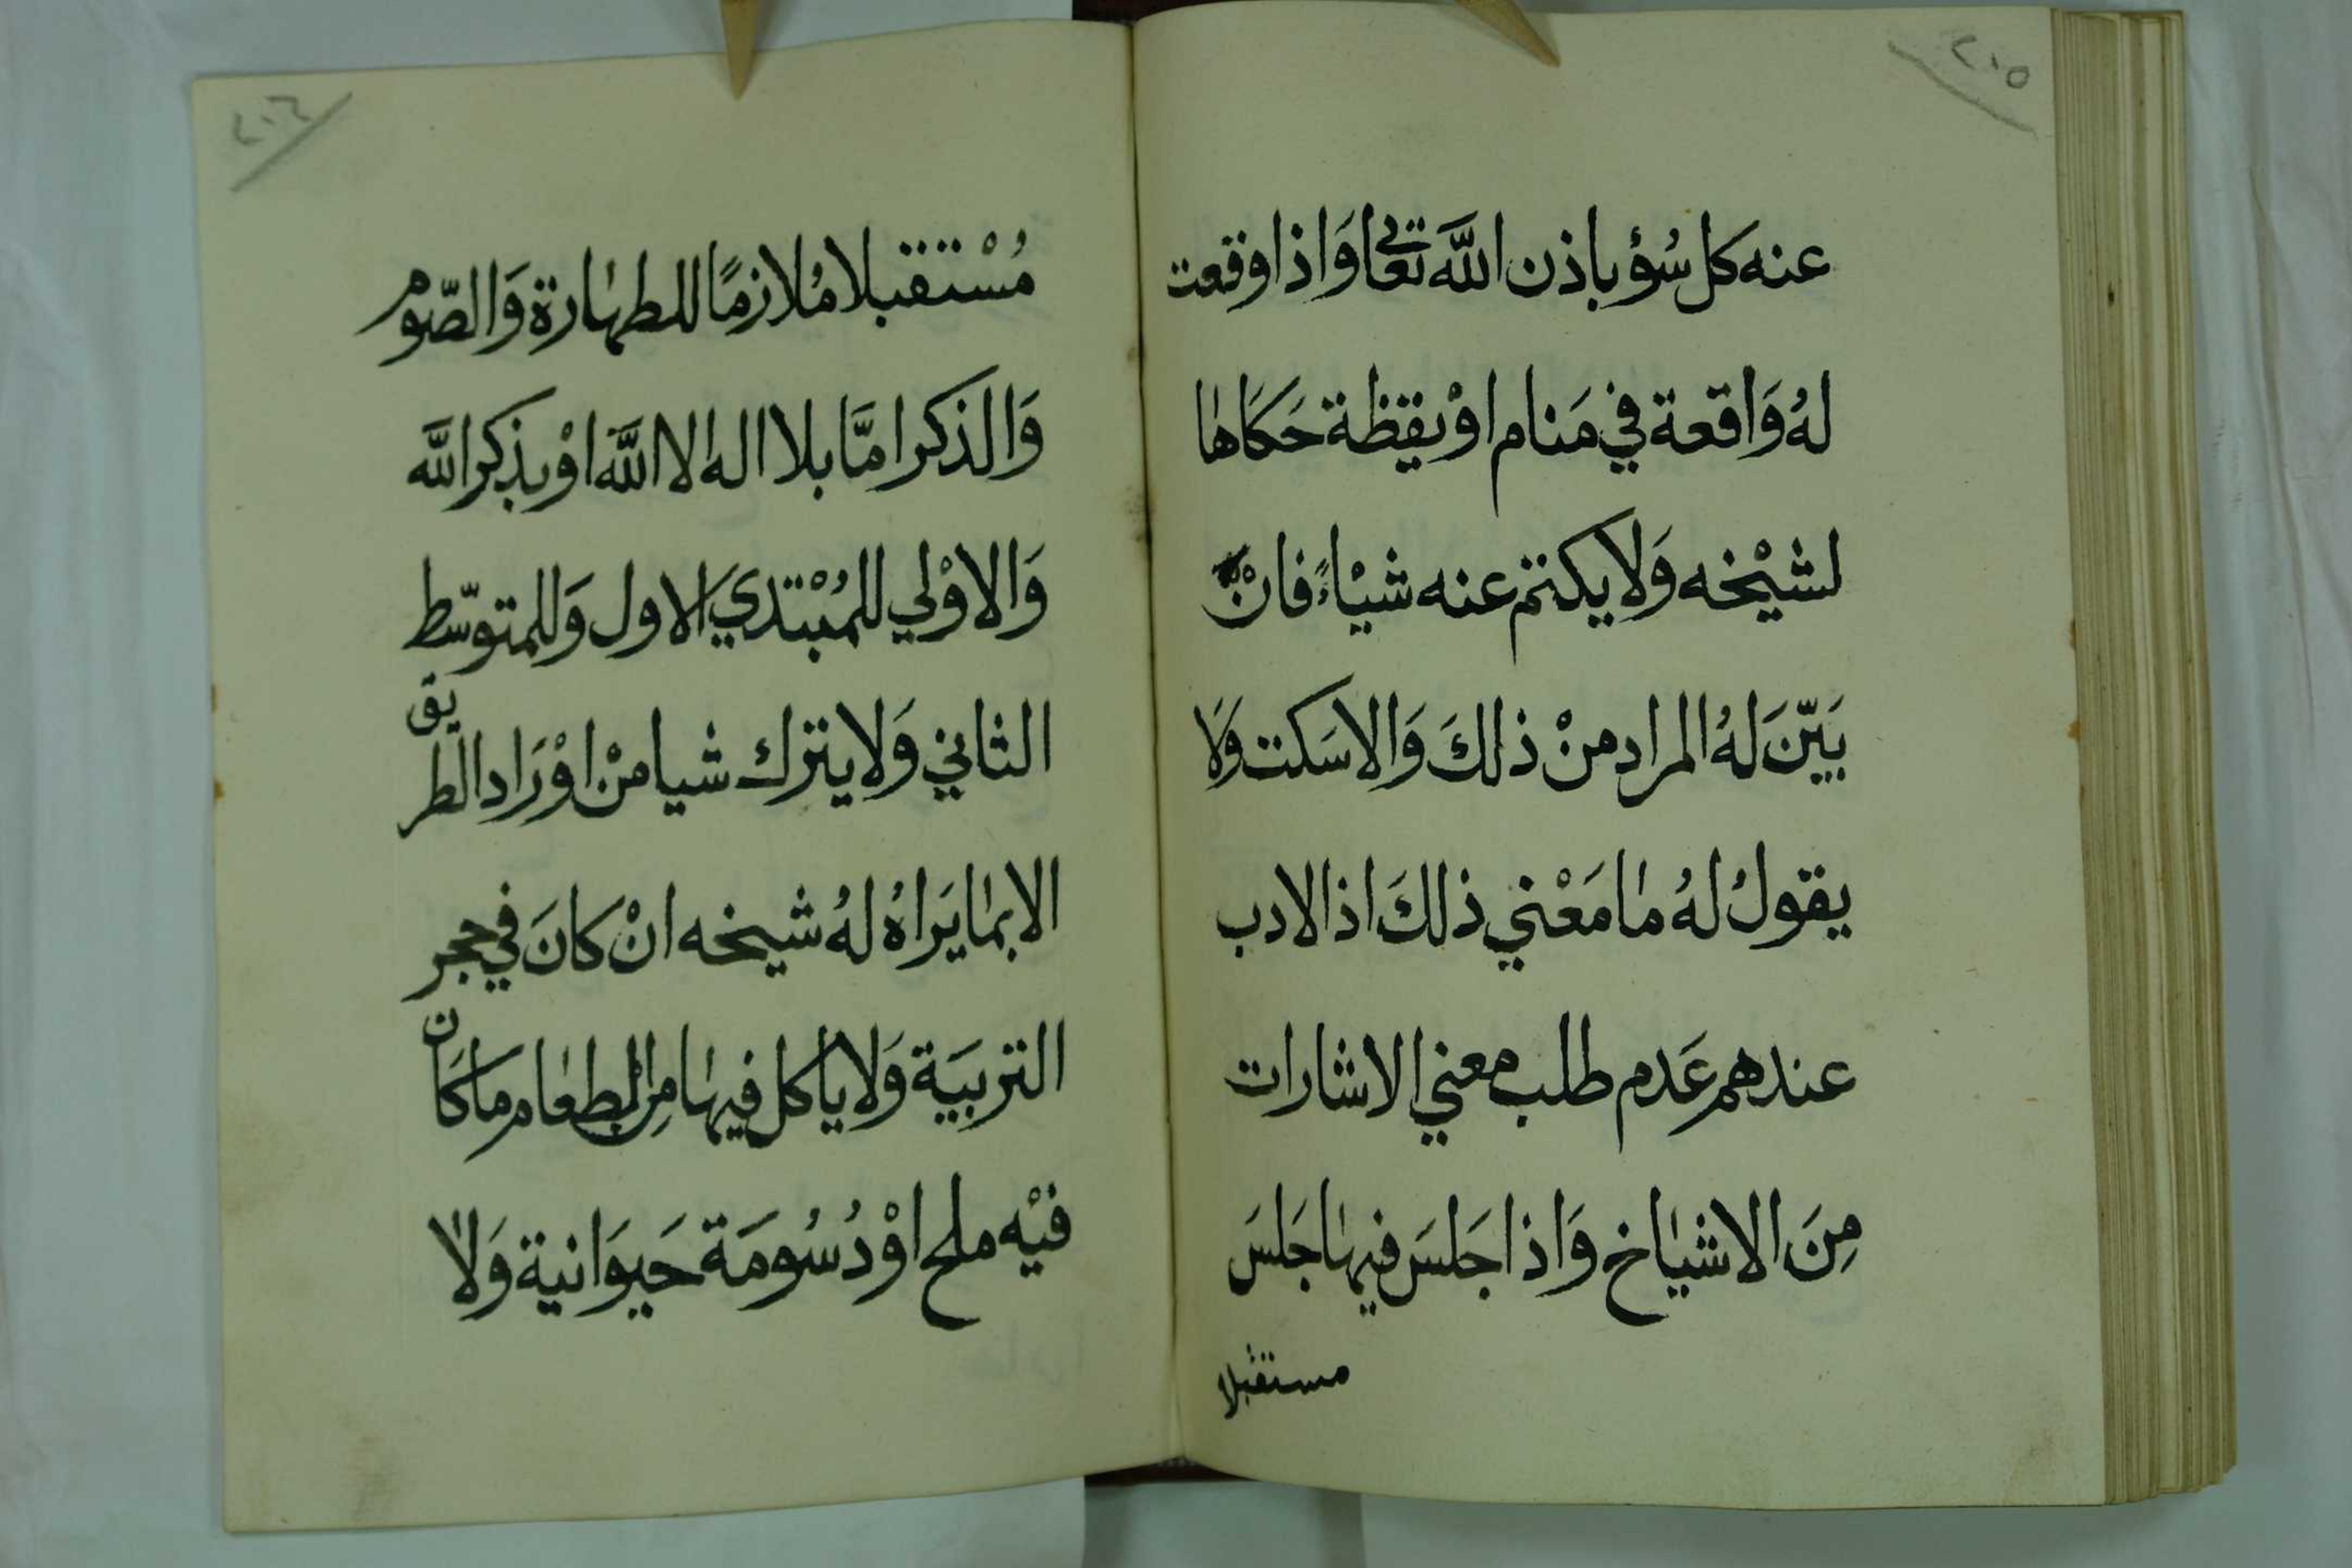 ٢٠٥
عنه كل سُؤ باذن اللَّه تعَالي وَاذا وقعت
لهُ وَاقعة في مَنام اوْ يقظة حَكاهَا
لشيْخه وَلا يكتم عنه شيْاءً فانْ
بَيّنَ لهُ المراد منْ ذلكَ وَالا سَكت وَلا
يقولُ لهُ مَا مَعْني ذلكَ اذ الادب
عندهم عَدم طلب معني الاشارات
مِنَ الاشيَاخ وَاذا جَلسَ فيهَا جَلسَ
مستقبلا
٢٠٦
مُسْتقبلا مُلازمًا للطهَارة وَالصّوم
وَالذكر امَّا بلا اله الا اللَّه اوْ بذكر اللَّه
وَالاوْلي للمُبْتدي الاول وَللمتوسّط
الثاني وَلا يترك شيا منْ اوْرَاد الطريق
الا بمَا يَراهُ لهُ شيخه انْ كانَ في حجر
التربيَة وَلا يأكل فيهَا مِن الطعَام مَا كَان
فيْه ملح اوْ دُسُومَة حَيوَانية وَلا